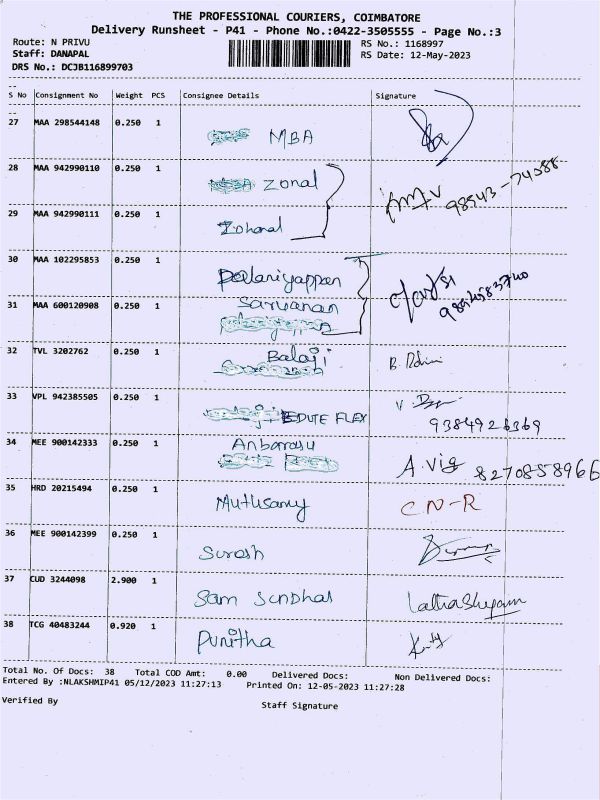 THE PROFESSIONAL COURIERS, COIMBATORE
Delivery Runsheet - P41 - Phone No.:0422-3505555 - Page No.:3
Route: N PRIVU RS No.: 1168997
Staff: DANAPAL RS Date: 12-May-2023
DRS No.: DCJB116899703
S No Consignment No Weight PCS Consignee Details Signature
27 MAA 298544148 0.250 1 MBA
28 MAA 942990110 0.250 1 Zonal
29 MAA 942990111 0.250 1
30 MAA 102295853 0.250 1 Palaniyappan
31 MAA 600120908 0.250 1 Sarvanan
32 TVL 3202762 0.250 1 Balaji
33 VPL 942385505 0.250 1 DUTE FLEX 9384926369
34 MEE 900142333 0.250 1 Anbarasu A. Vig 8270858966
35 HRD 20215494 0.250 1 Muthusamy C N-R
36 MEE 900142399 0.250 1 Suresh
37 CUD 3244098 2.900 1 Sam
38 TCG 40483244 0.920 1 Punitha
Total No. Of Docs: 38 Total COD Amt: 0.00 Delivered Docs: Non Delivered Docs:
Entered By :NLAKSHMIP41 05/12/2023 11:27:13 Printed On: 12-05-2023 11:27:28
Verified By Staff Signature